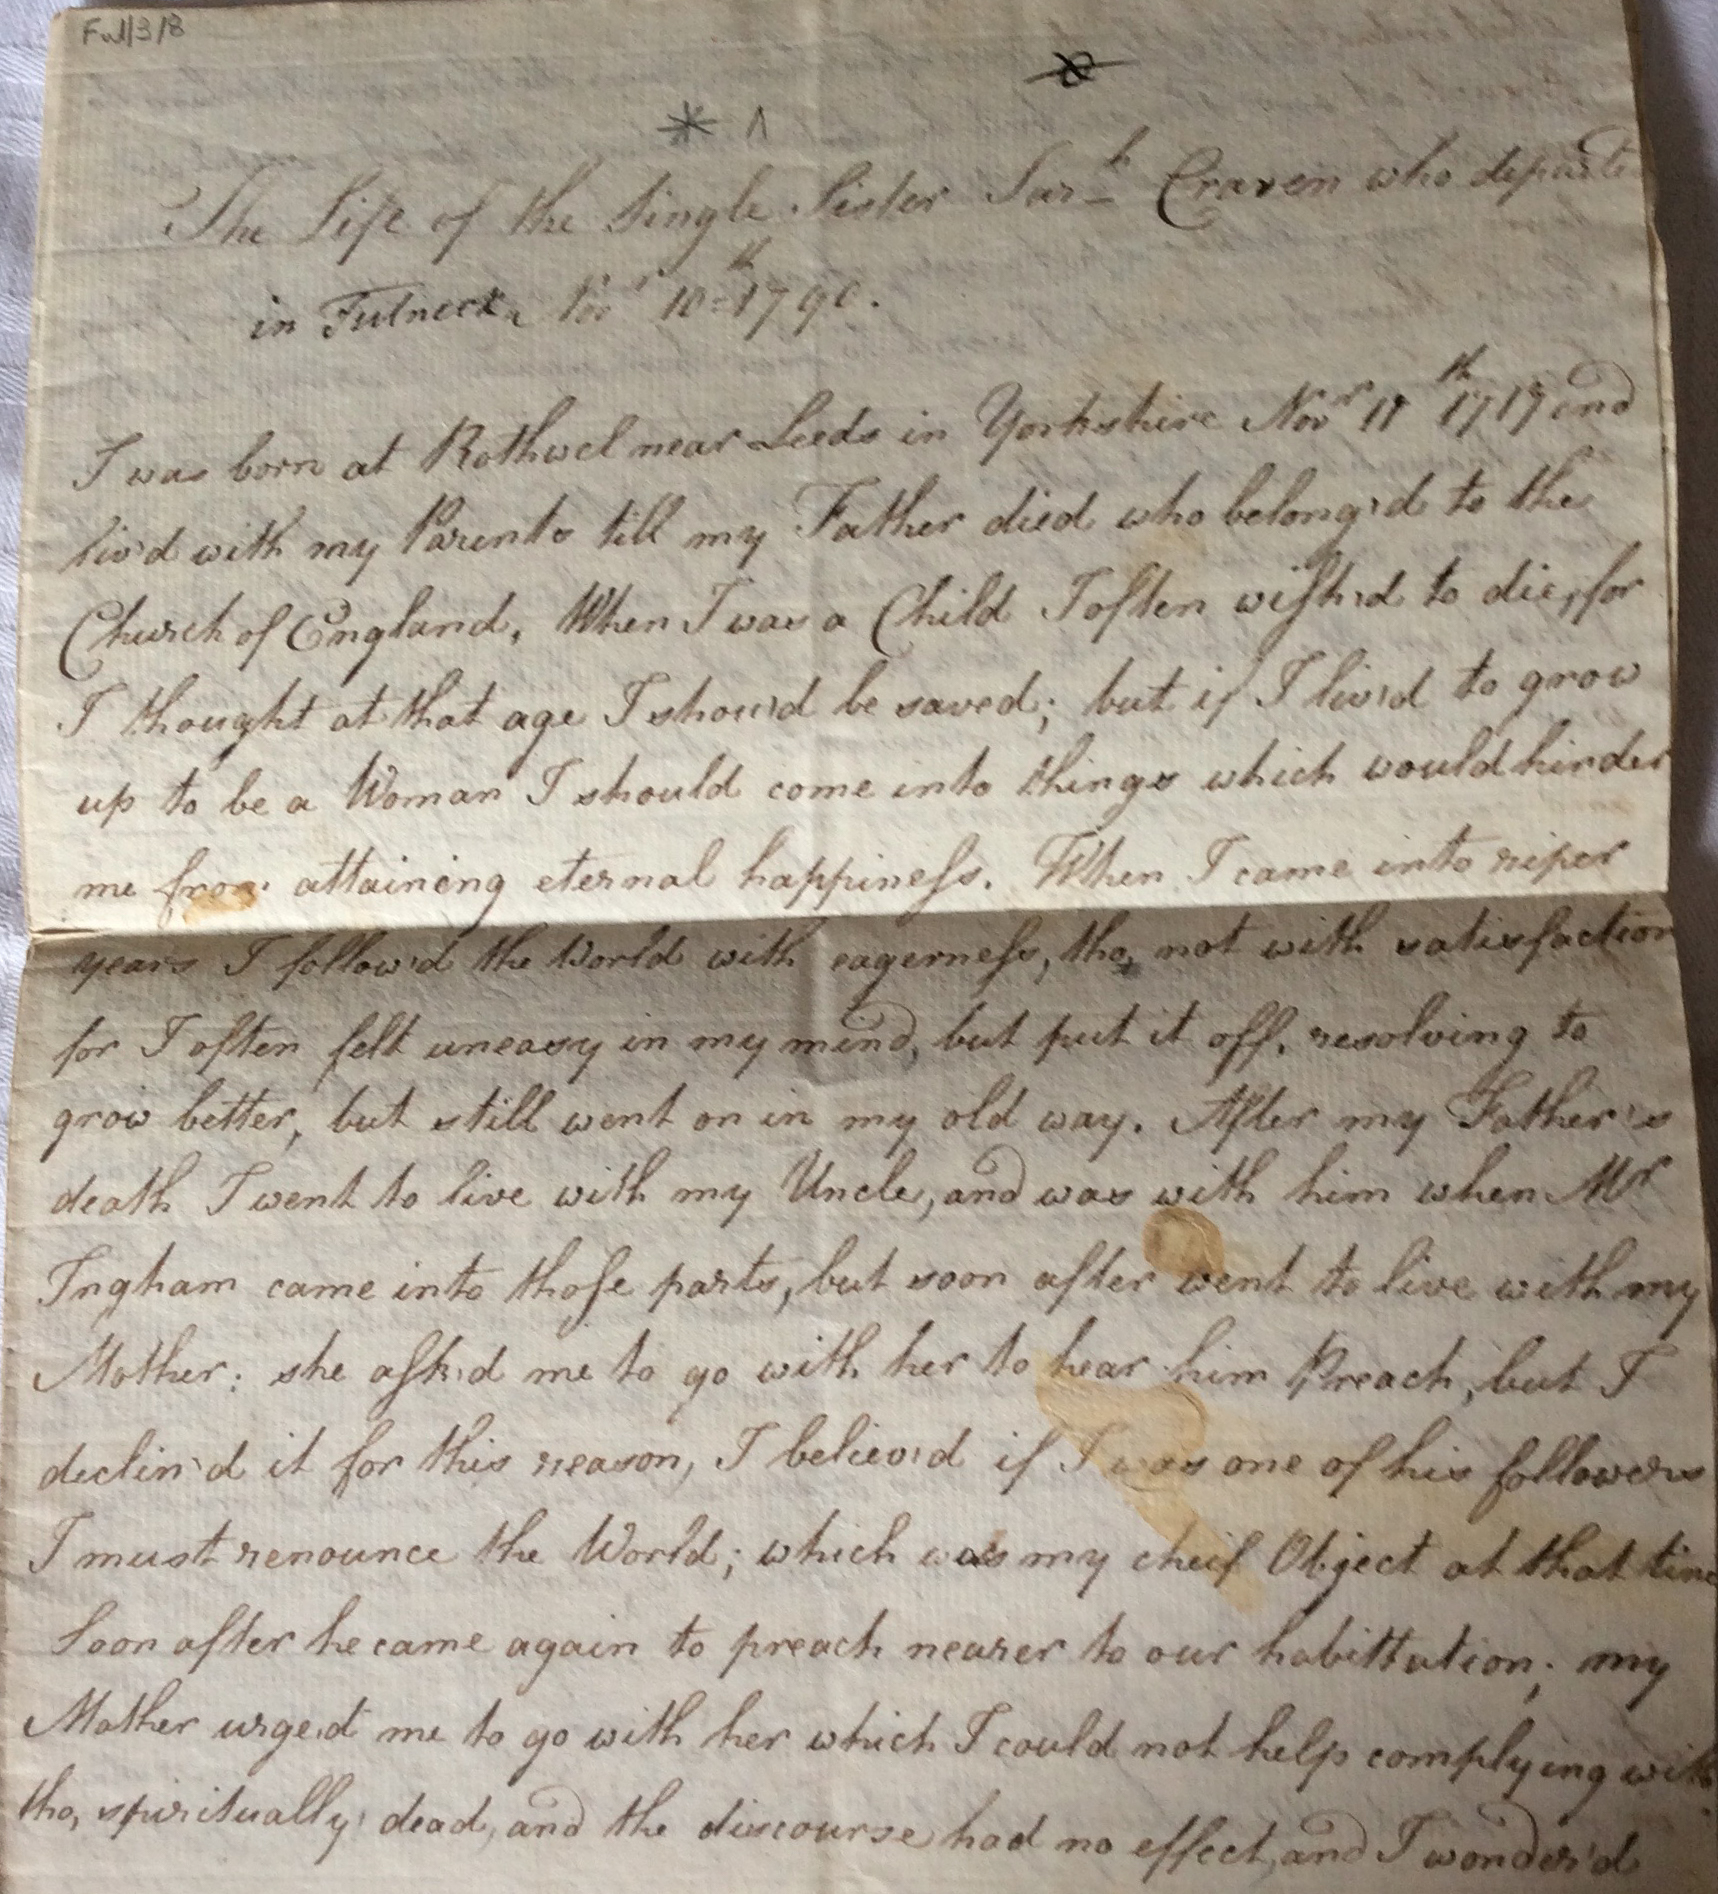 Ful/3/8
The Life of the Single Sister Sarh Craven who departed
in Fulneck Novr 10th 1790.
I was born at Rothwel near Leeds in Yorkshire Novr 11th 1719 and
liv'd with my Parents till my Father died who belong'd to the
Church of England, When I was a Child I often wish'd to die, for
I thought at that age I shou'd be saved; but if I liv'd to grow
up to be a Woman I should come into things which would hinder
me from attaining eternal happiness. When I came into riper
years I follow'd the World with eagerness, tho, not with satisfaction
for I often felt uneasy in my mind, but put it off, resolving to
grow better, but still went on in my old way. After my Father's
death I went to live with my Uncle, and was with him when Mr
Ingham came into those parts, but soon after went to live with my
Mother: she ask'd me to go with her to hear him Preach, but I
declin'd it for this reason, I believ'd if I was one of his followers
I must renounce the World; which was my cheif Object at that time
Soon after he came again to preach nearer to our habittation; my
Mother urged me to go with her which I could not help complying with
tho, spiritually dead, and the discourse had no effect, and I wonder'd